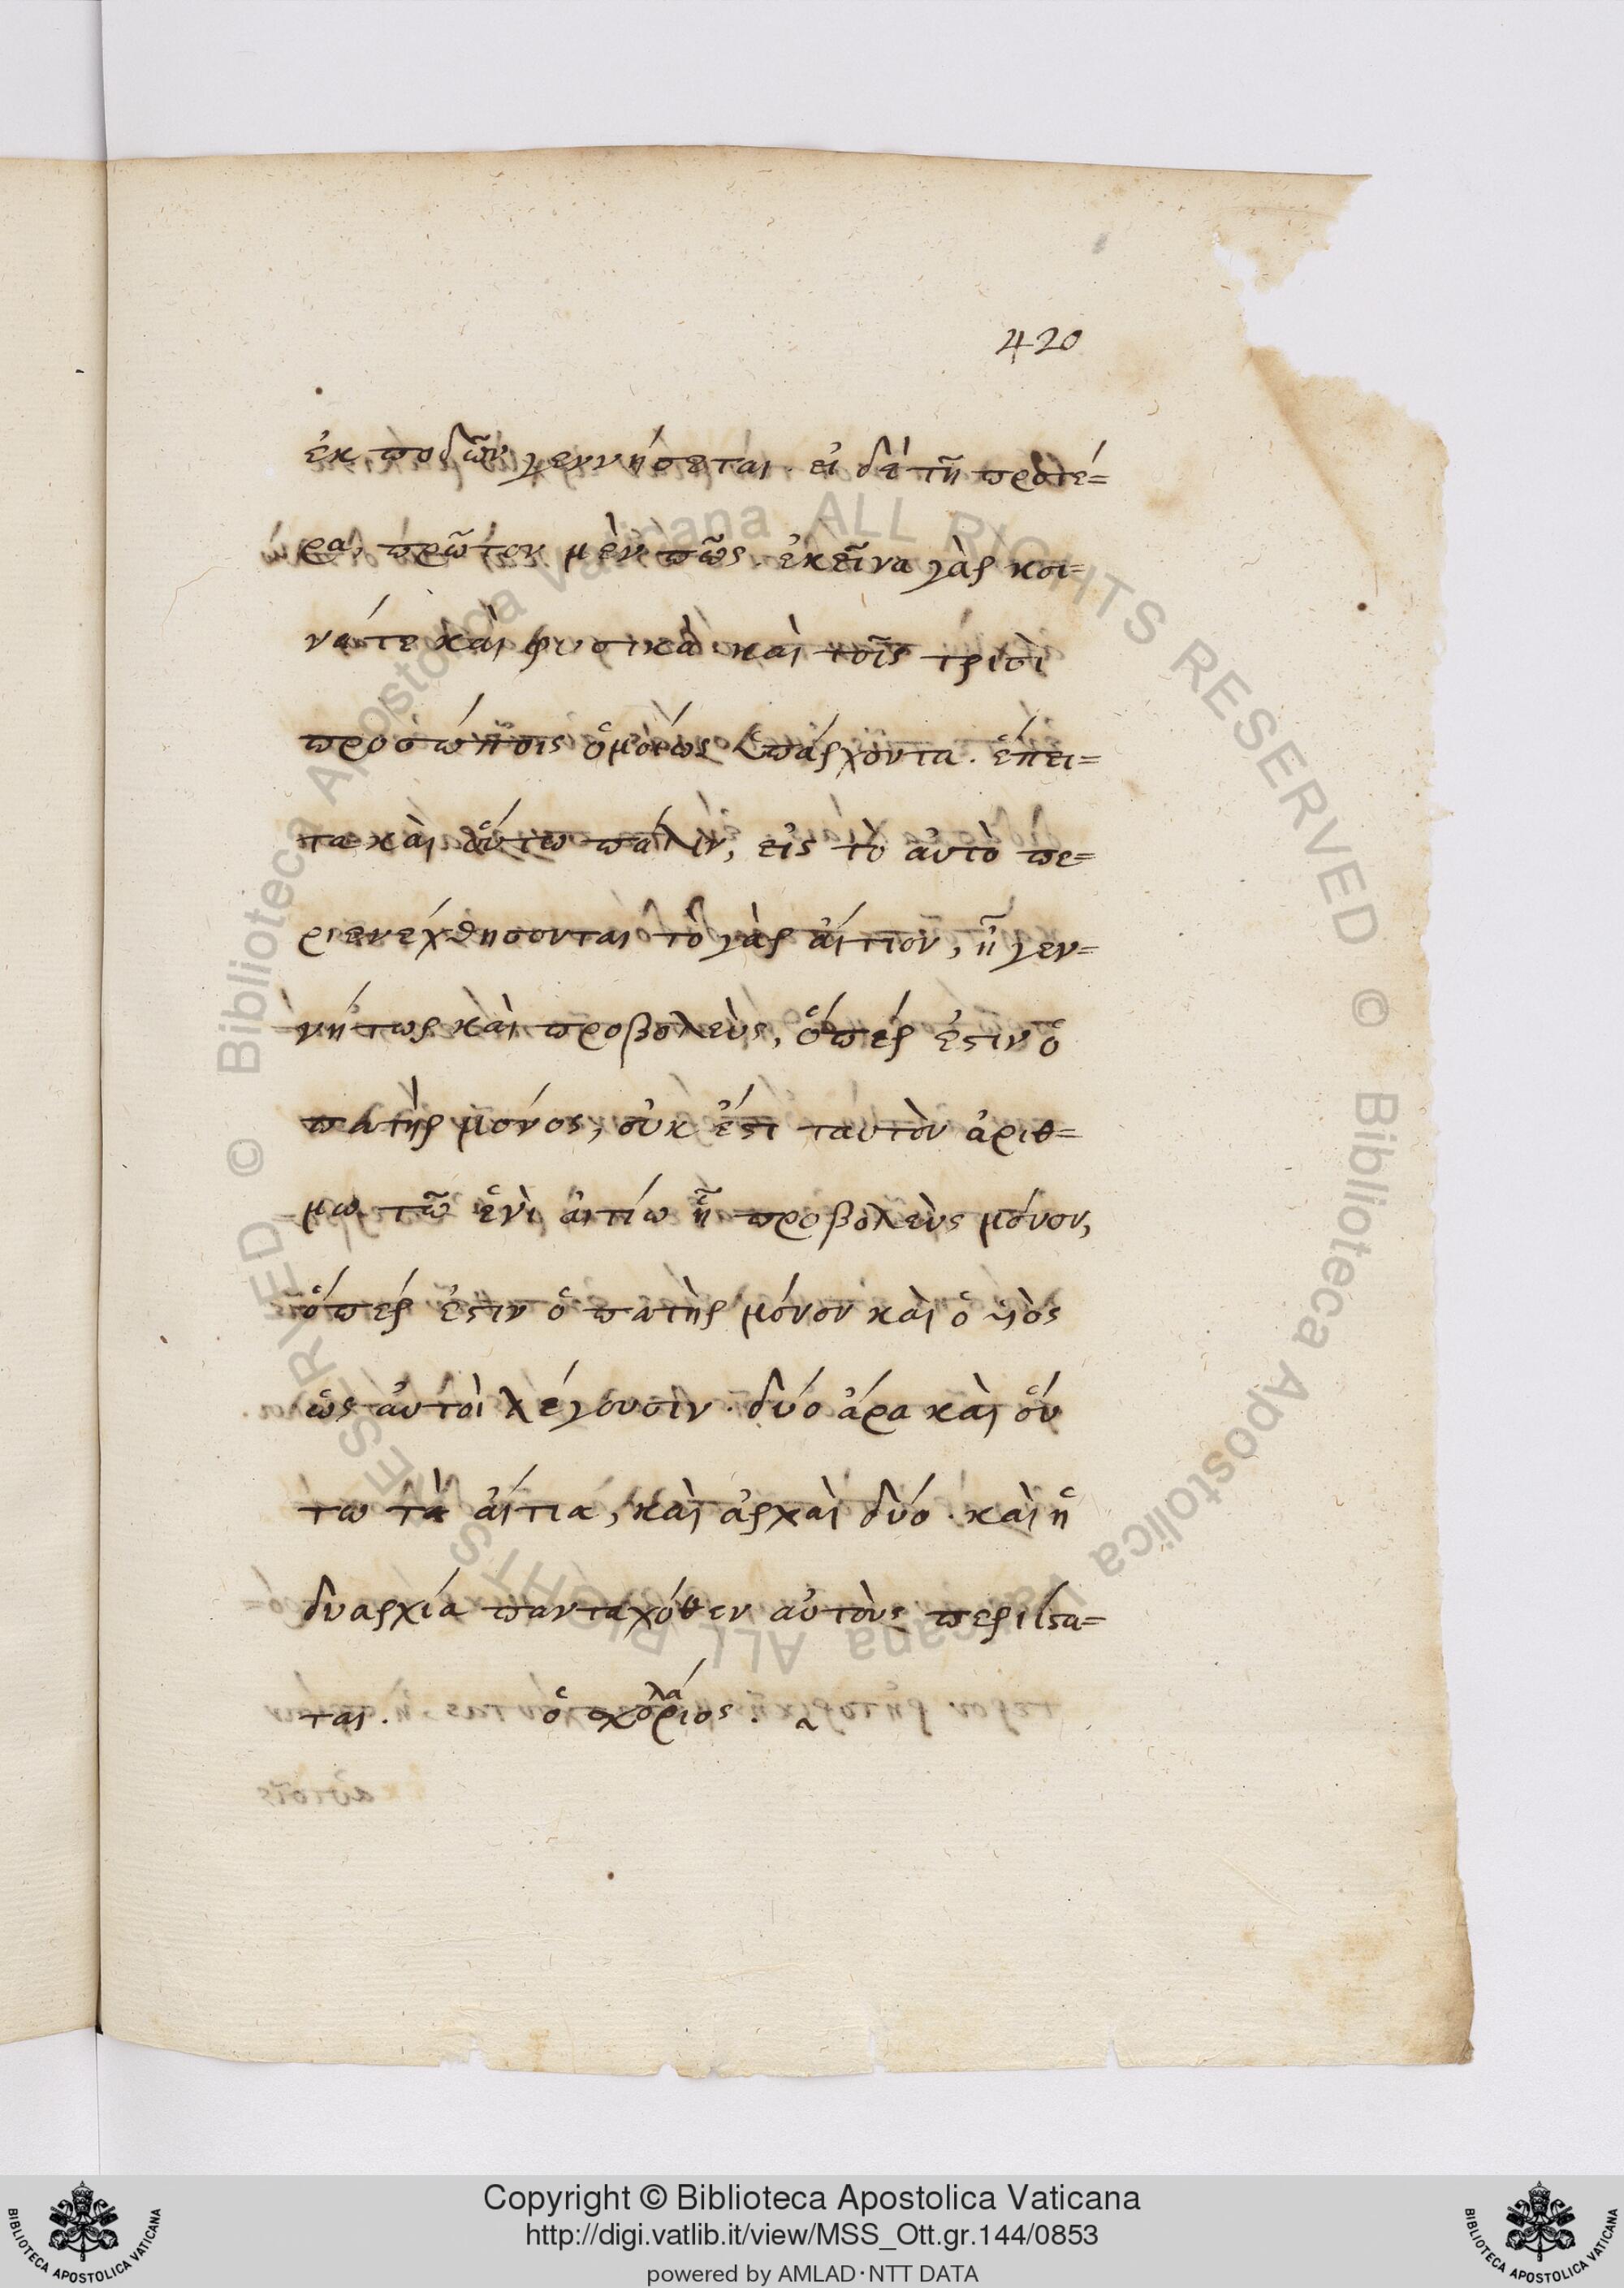 420
ἐκ ποδῶν γεννήσεται. εἰ δὲ τῆ προτέ=
ρα, πρῶτον μὲν πῶς. ἐκεῖνα γὰρ κοι=
νάτε καὶ φυσικὰ καὶ τοῖς τρισὶ
προσώποις ὁμοίως ὑπάρχοντα. ἔπει=
τα καὶ οὕτω πάλιν, εἰς τὸ αὐτὸ πε=
ριενεχθήσονται τὸ γὰρ αἴτιον, ἢ γεν=
νήτωρ καὶ προβολεὺς, ὅπέρ ἐστιν ὁ
πατὴρ μόνος, οὐκ ἔστι ταυτὸν ἀριθ=
μω τῶ ἑνὶ αἰτίω ἧ προβολεὺς μόνον,
ὅπέρ ἐστιν ὁ πατὴρ μόνον καὶ ὁ υἱὸς
ὡς αὐτοὶ λέγουσιν. δύο ἄρα καὶ οὕ
τω τὰ αἴτια, καὶ ἀρχαὶ δύο. καὶ ἡ
δυαρχία πανταχόθεν αὐτοὺς περιίστα=
ται. ὁ σχολάριος.
Copyright © Biblioteca Apostolica Vaticana
http://digi.vatlib.it/view/MSS_Ott.gr.144/0853
powered by AMLAD·NTT DATA
BIBLIOTECA APOSTOLICA VATICANA
BIBLIOTECA APOSTOLICA VATICANA
© Biblioteca Apostolica Vaticana ALL RIGHTS RESERVED © Biblioteca Apostolica Vaticana ALL RIGHTS RESERVED